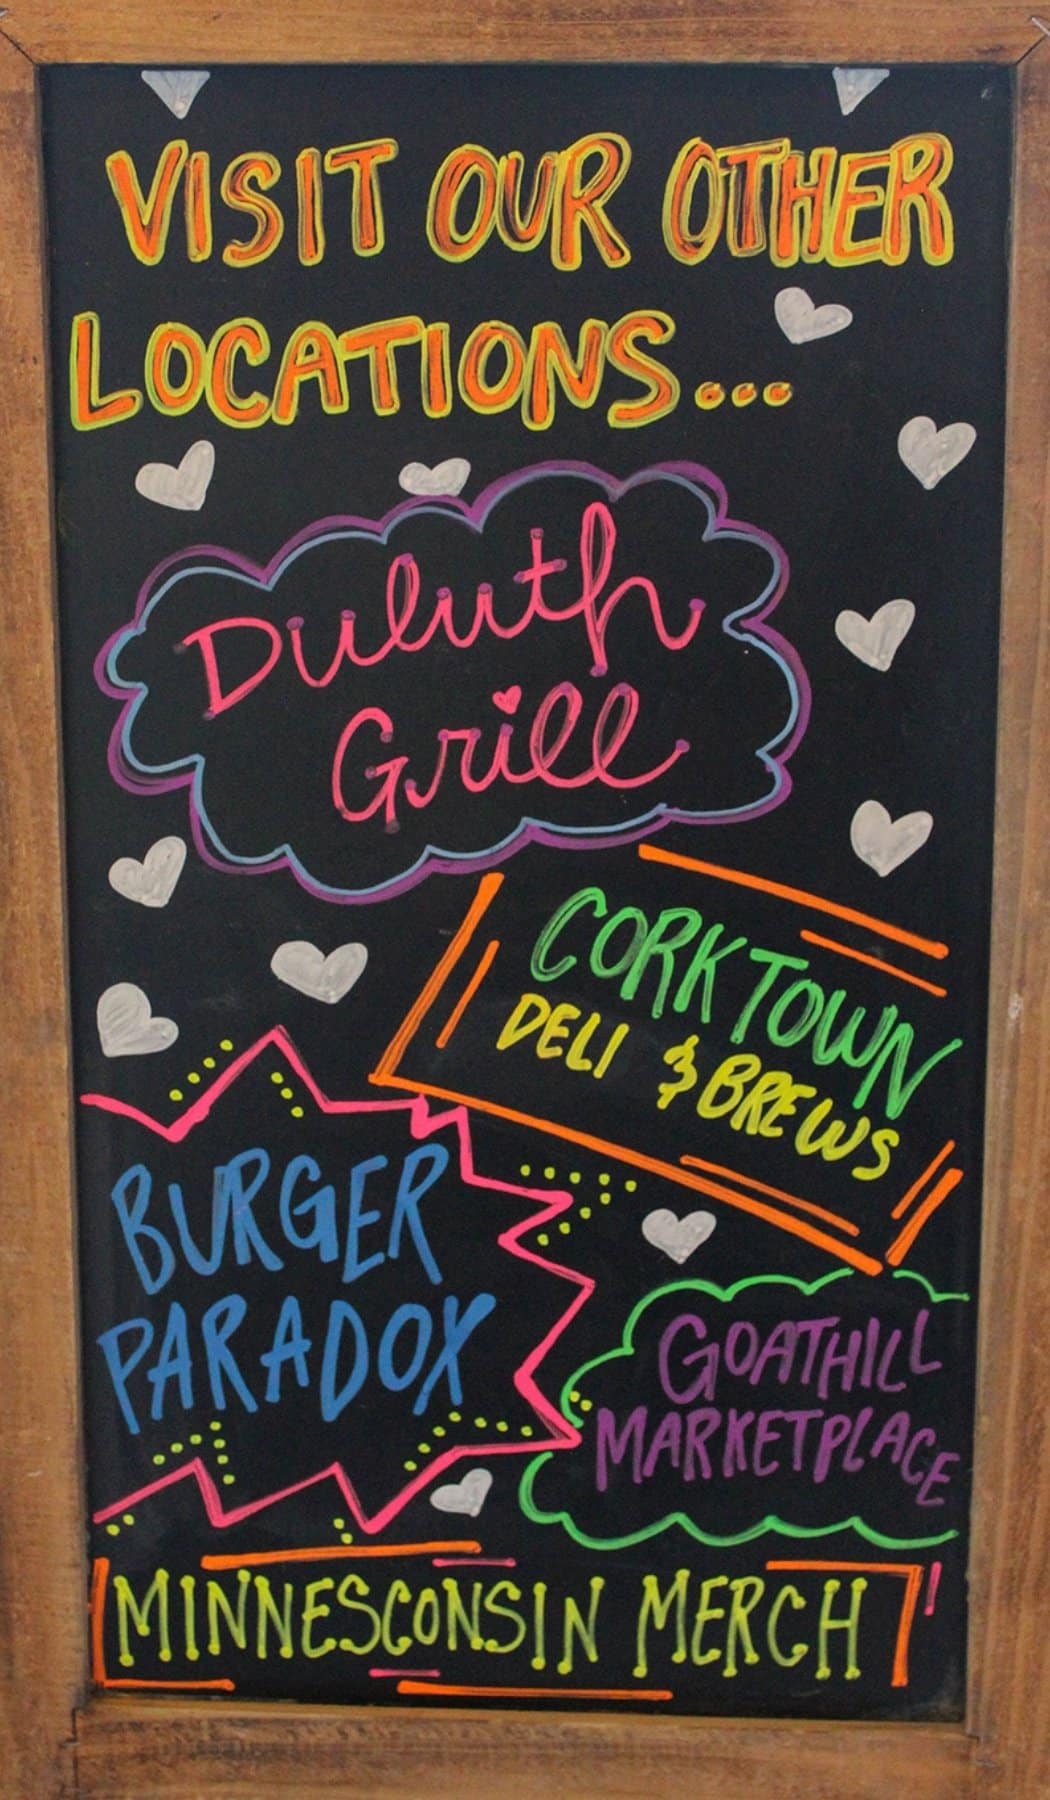 VISIT OUR OTHER
LOCATIONS...
Duluth
Grill
CORKTOWN
DELI & BREWS
BURGER
PARADOX
GOATHILL
MARKETPLACE
MINNESCONSIN MERCH